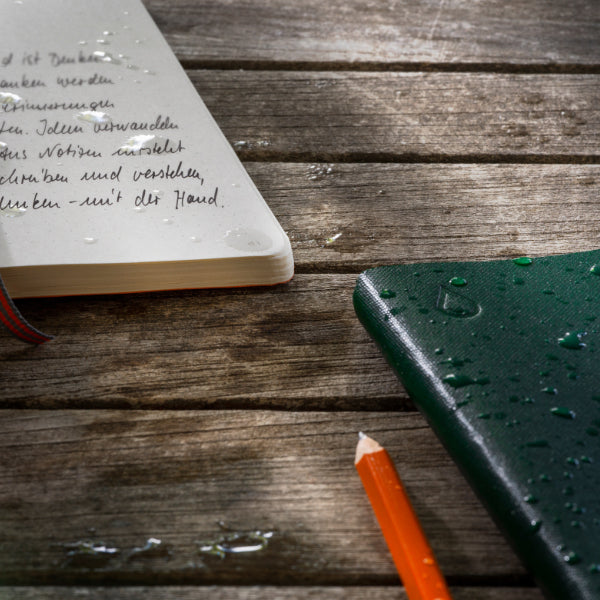 ist Denken
anken werden
erinnerungen
ten. Ideen verwandeln
Aus Notizen entsteht
chreiben und verstehen,
denken - mit der Hand.